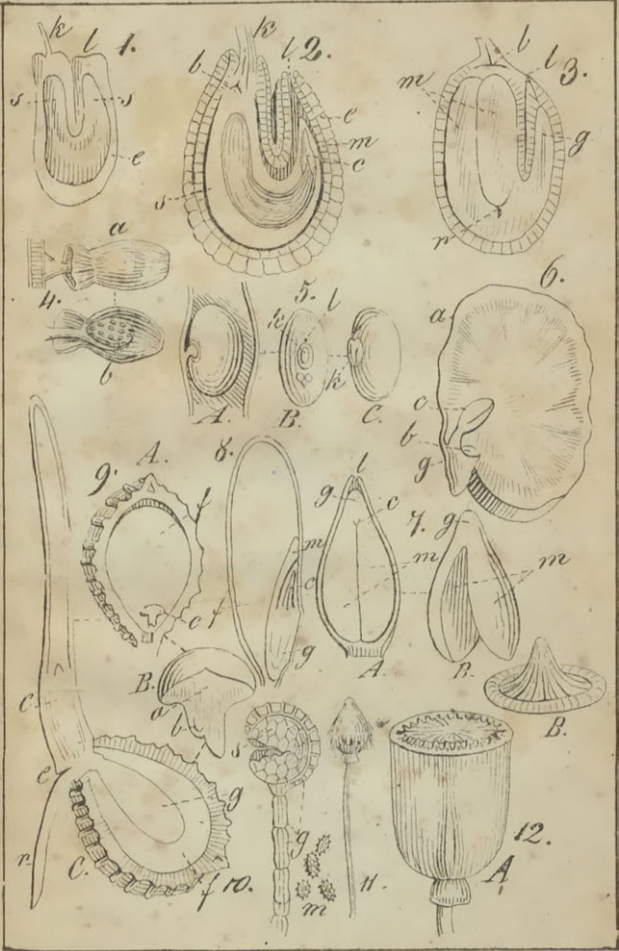 k l 1.
s s
e
b k l 2.
e
m
c
s
b l 3.
m
g
r
a
4.
b
5. l
k
k
A. B. C.
6.
a
c
b
g
9. A.
f
c
8.
m
c
f
g
l
g c
m
A.
7.
g
m
B.
B.
a
b
c
e
r
g
C.
f 10.
s
g
m
11.
B.
12.
A